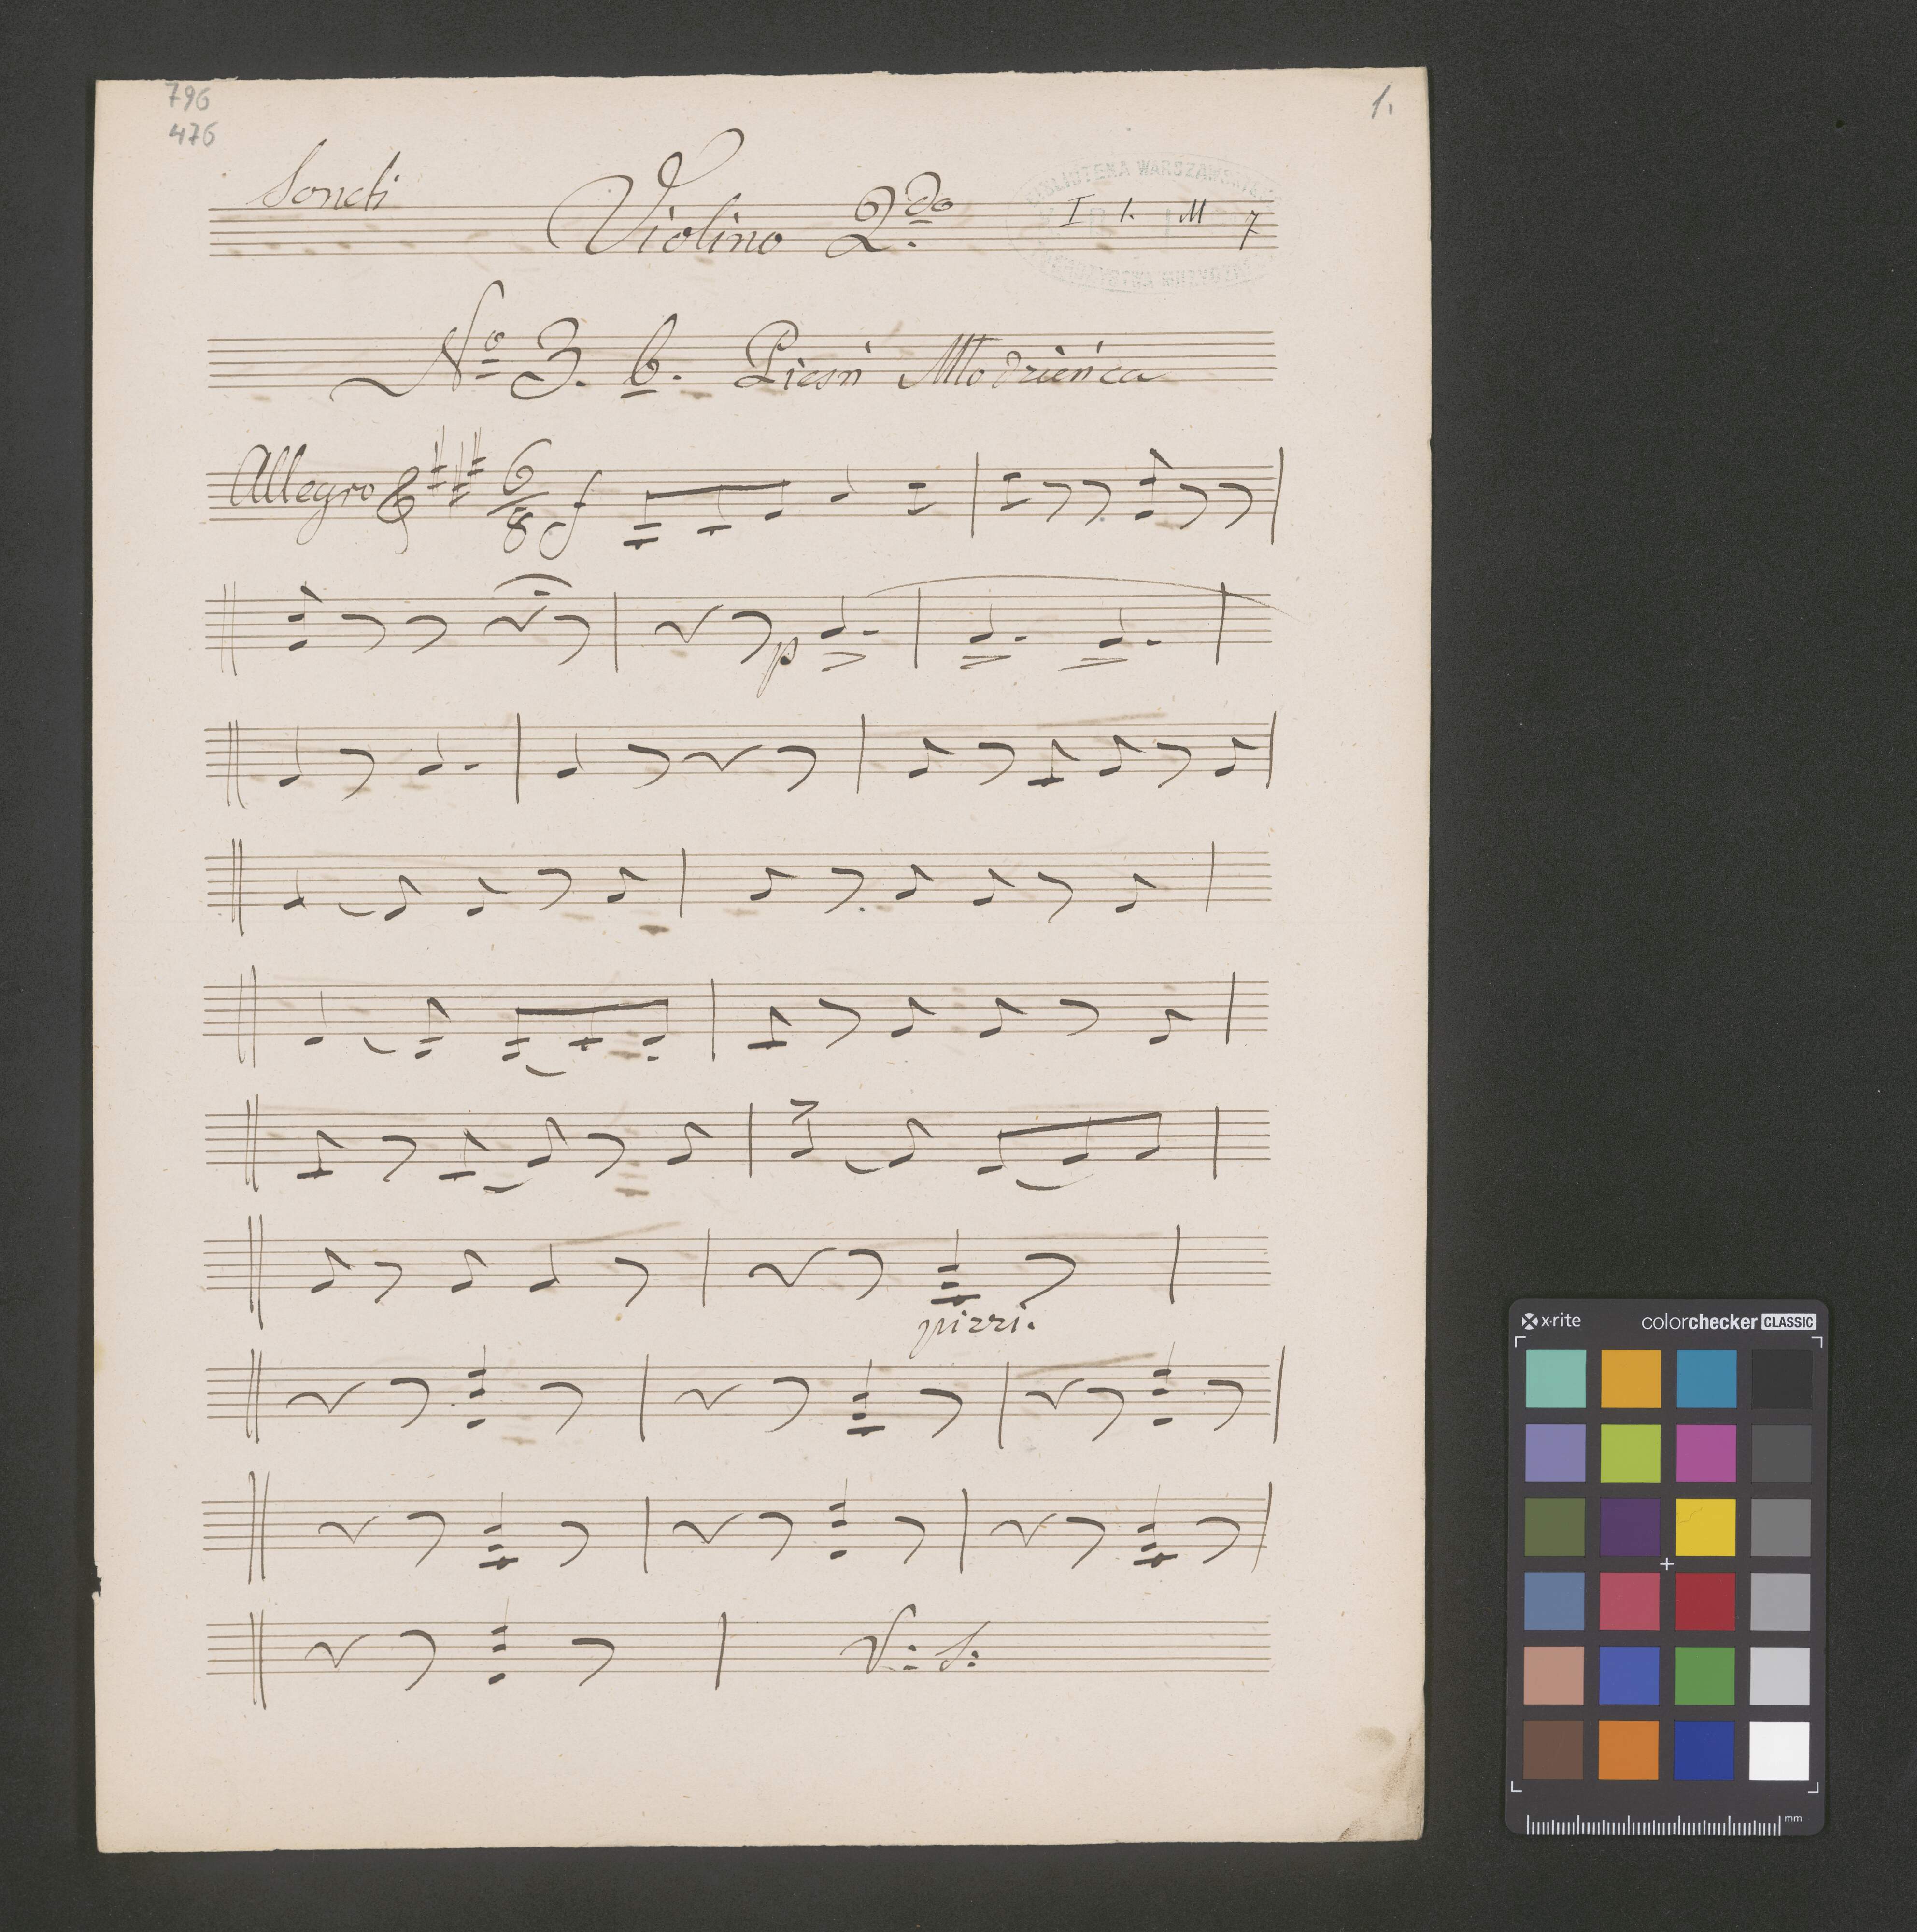 796
476
1.
Soncti
Violino 2do
I 1. M 7
BIBLIOTEKA WARSZAWSKIEGO
No 3. b. Pieśń Młodzieńca
Allegro 6/8 f
p
pizzi.
V: S:
x-rite colorchecker CLASSIC
mm